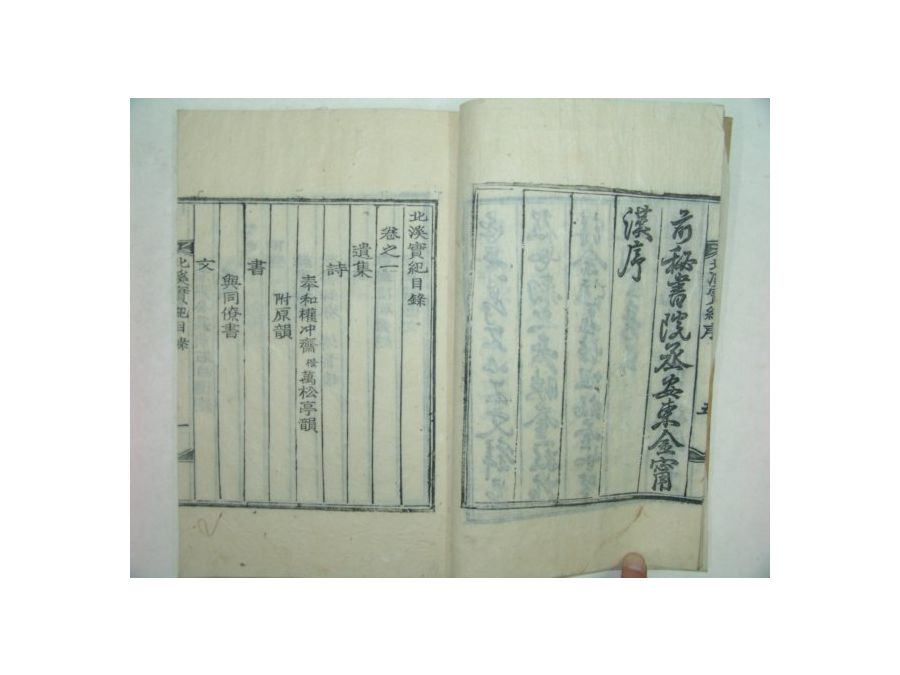 北溪實紀序
五
前秘書院丞安東金甯
漢序
北溪實紀目錄
卷之一
遺集
詩
奉和權冲齋橃萬松亭韻
附原韻
書
與同僚書
文
北溪實紀目錄
一